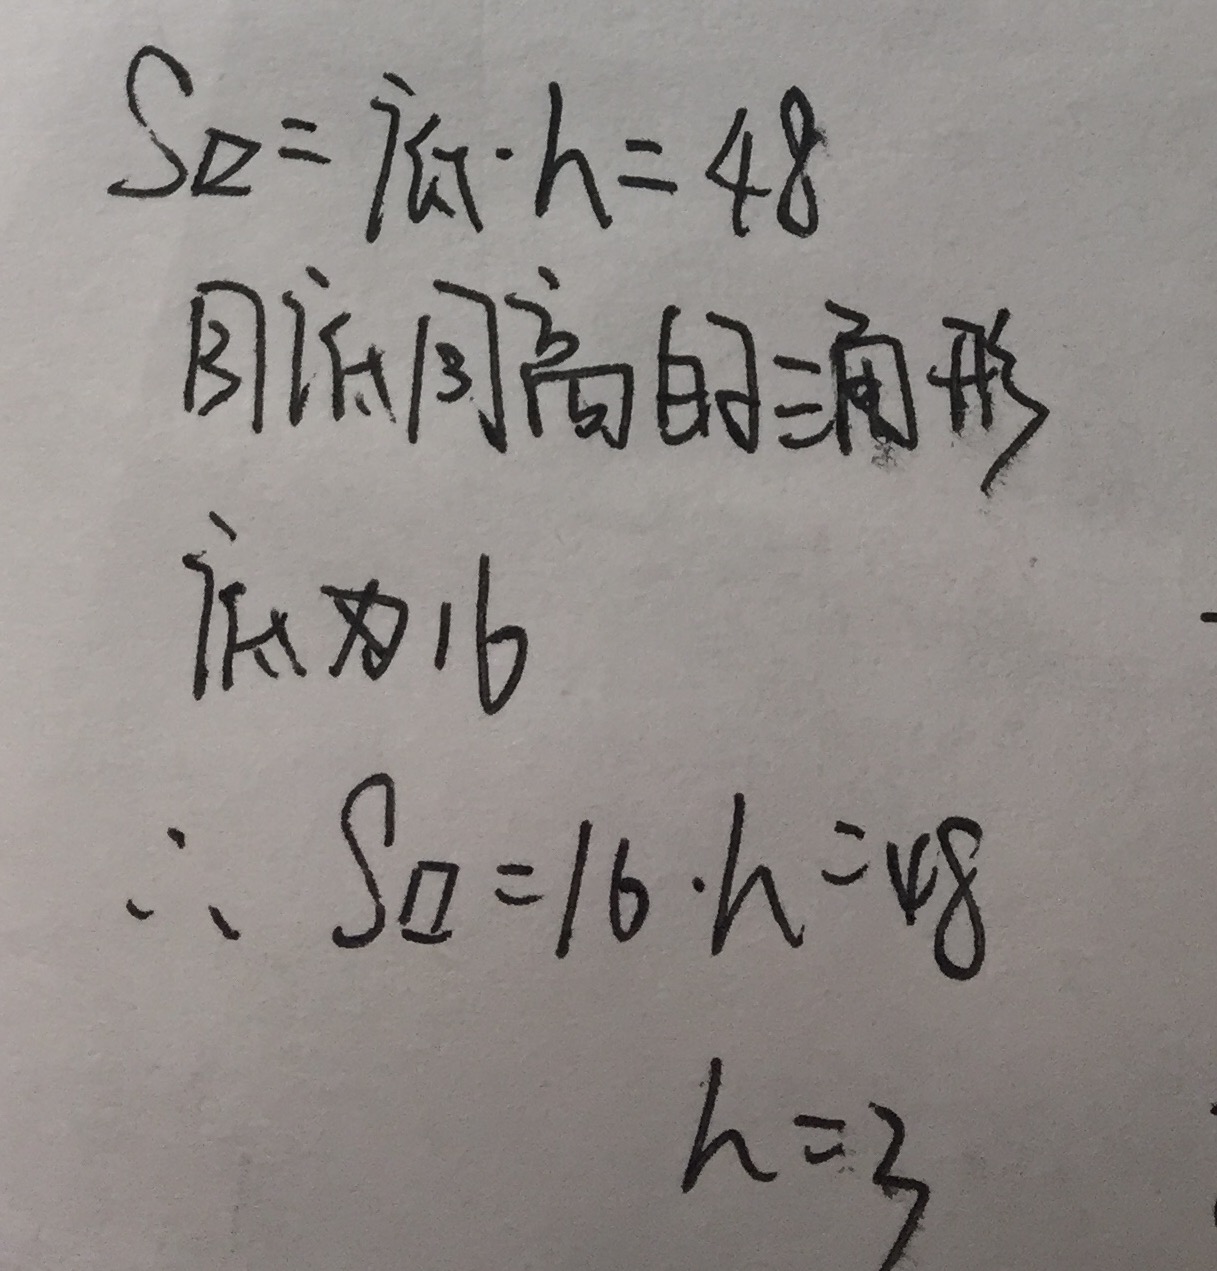 S▱=底·h=48
同底同高的三角形
底为16
∴ S▱=16·h=48
h=3